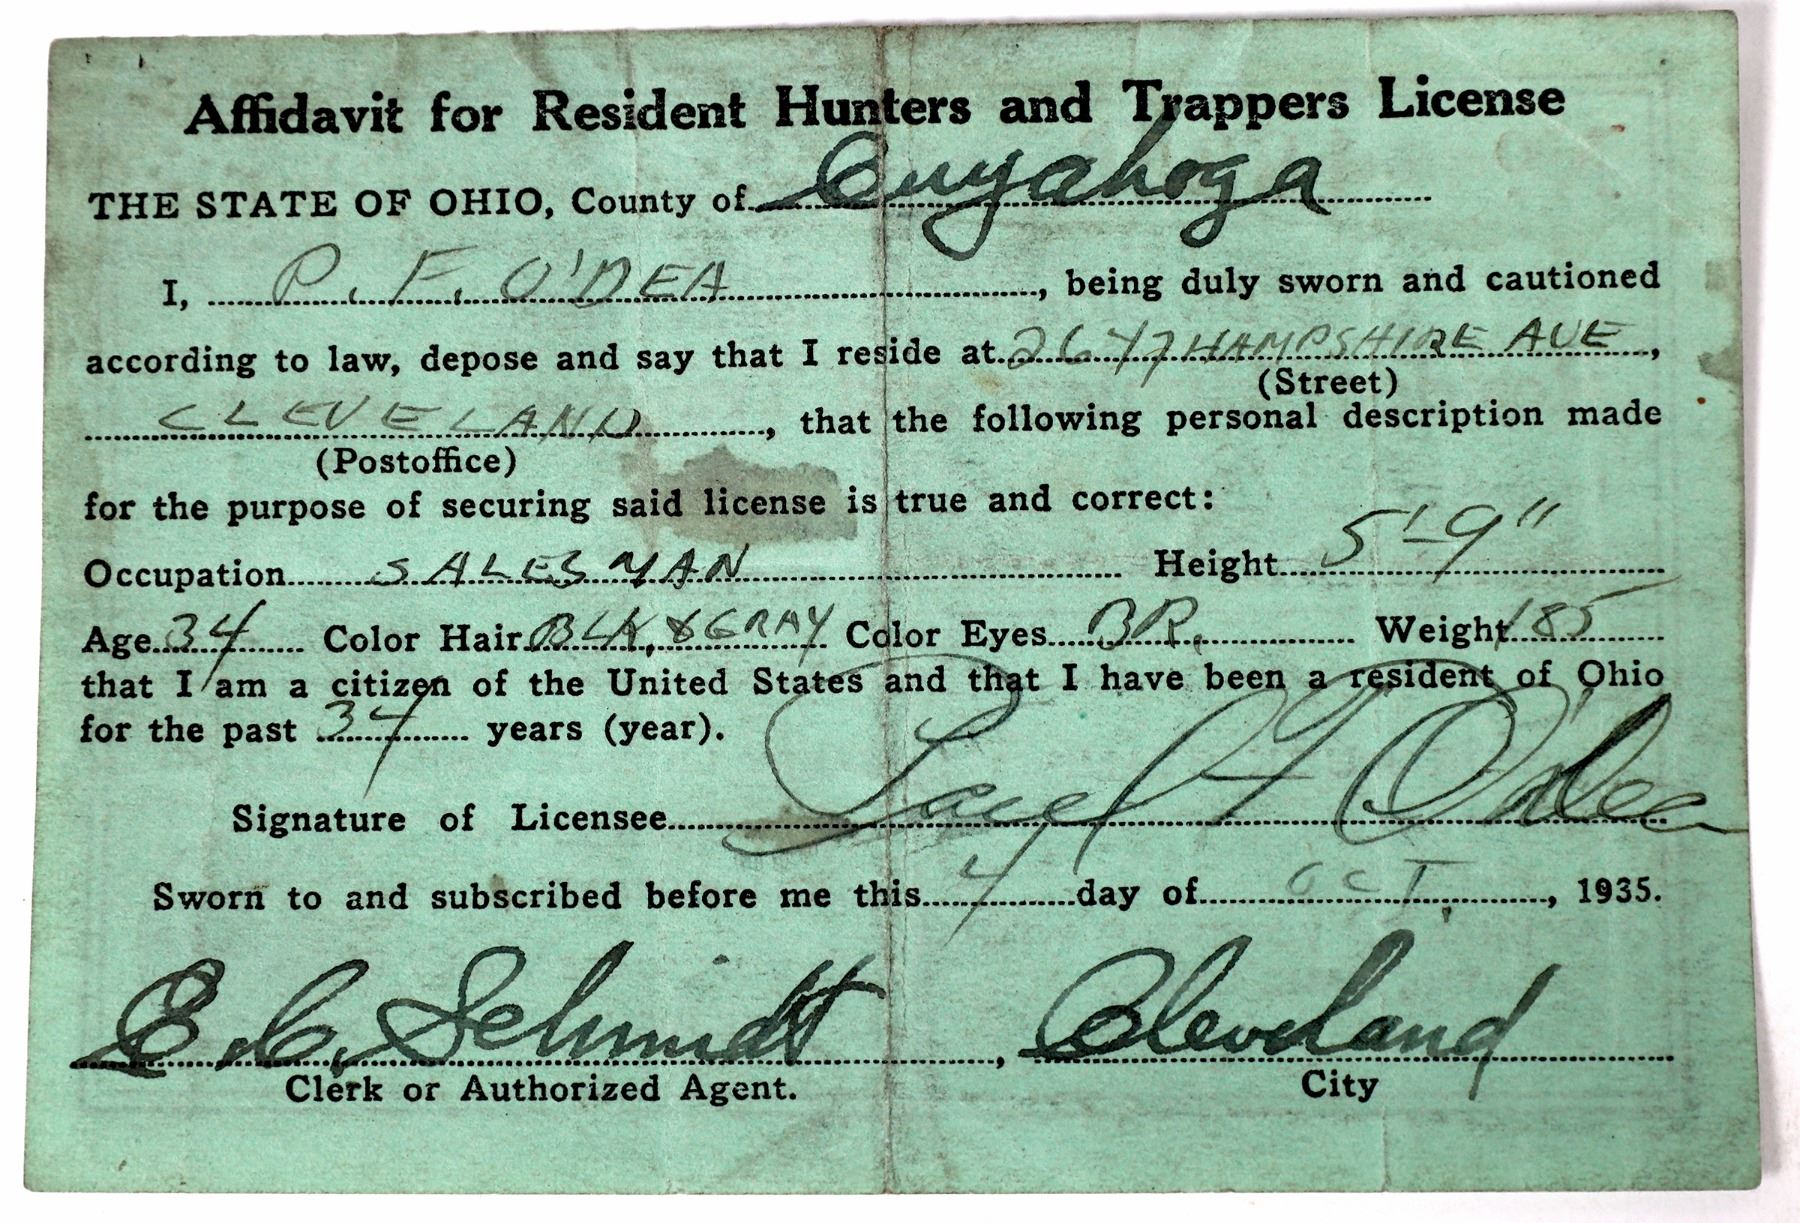 Affidavit for Resident Hunters and Trappers License
THE STATE OF OHIO, County of Cuyahoga
I, P. F. O'DEA, being duly sworn and cautioned
according to law, depose and say that I reside at 2647 HAMPSHIRE AVE,
(Street)
CLEVELAND, that the following personal description made
(Postoffice)
for the purpose of securing said license is true and correct:
Occupation SALESMAN Height 5'-9"
Age 34 Color Hair BLK. & GRAY Color Eyes BR. Weight 185
that I am a citizen of the United States and that I have been a resident of Ohio
for the past 34 years (year).
Signature of Licensee Paul F O'Dea
Sworn to and subscribed before me this 4 day of OCT., 1935.
E. C. Schmidt, Cleveland
Clerk or Authorized Agent. City